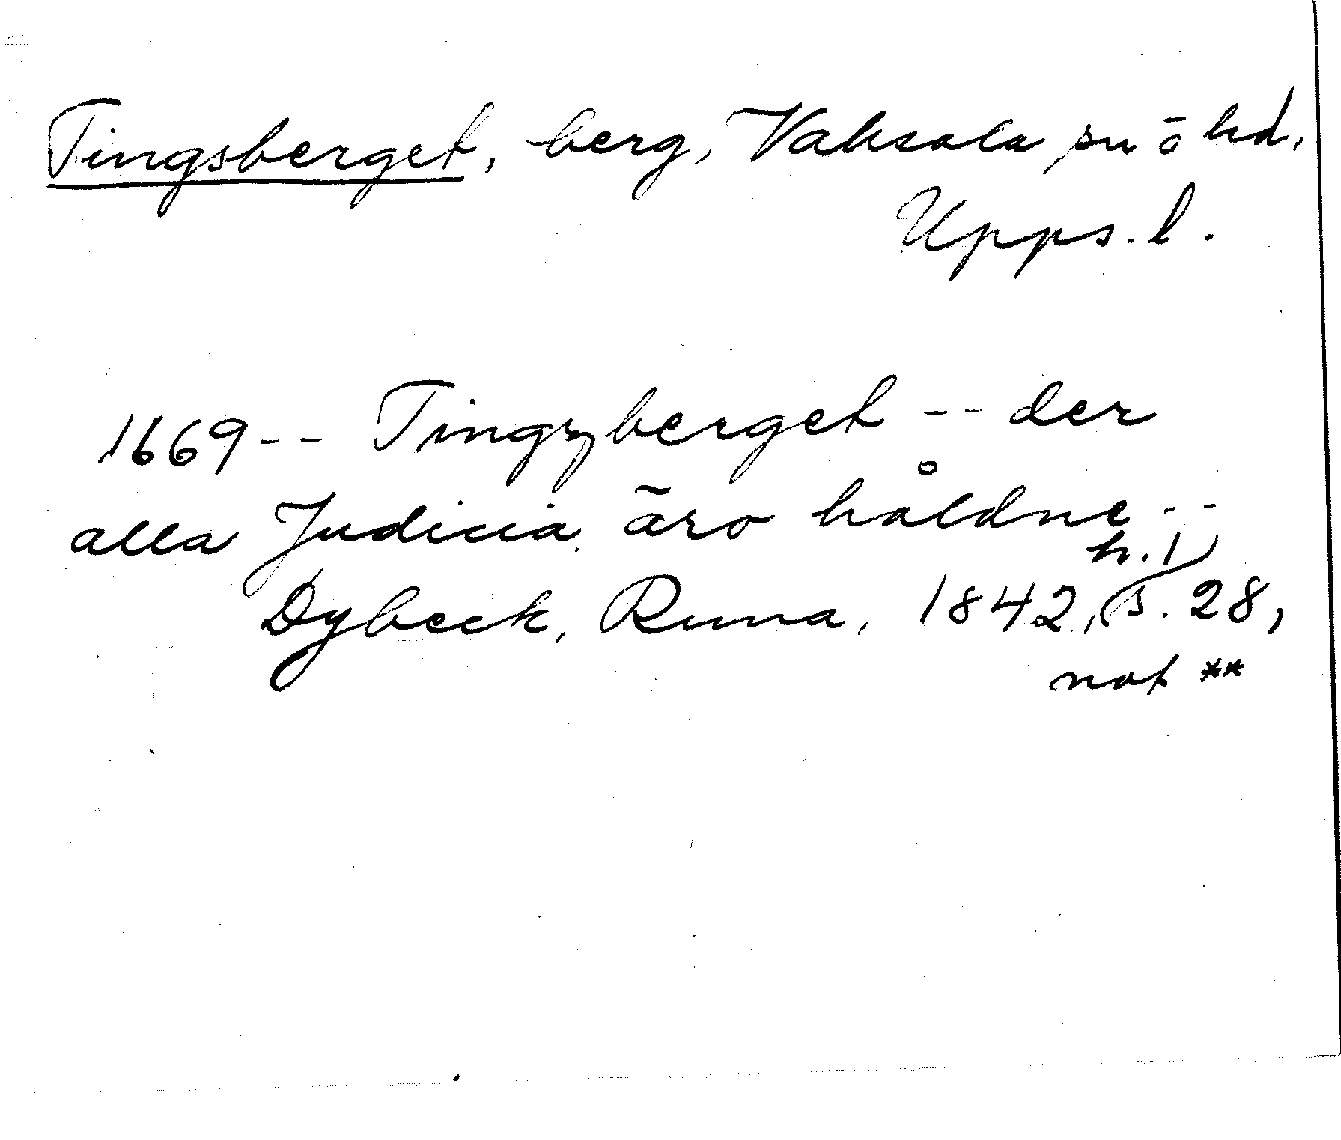 Tingsberget, berg, Vaksala sn ō hd,
Upps. l.
1669 -- Tingzberget -- der
alla Judicia äro håldne --
Dybeck, Runa, 1842, h. 1, s. 28,
not **